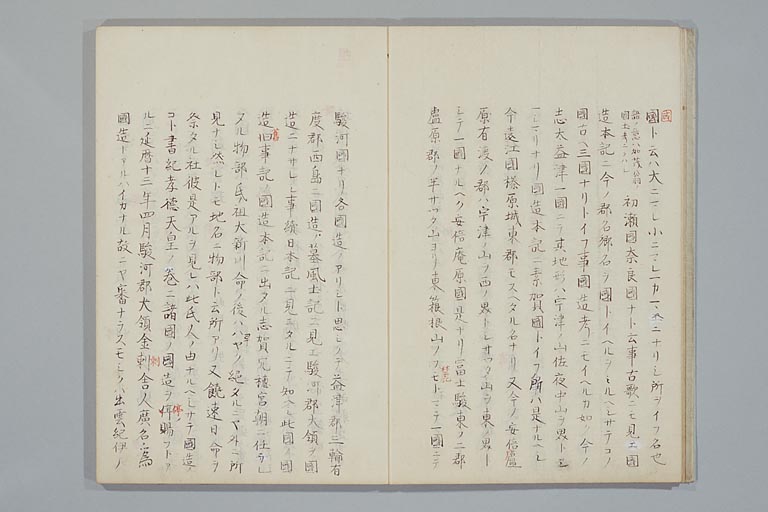 國ト云ハ大ニマレ小ニマレ一カマヘニナリシ所ヲイフ名也
初瀬國奈良國ナト云事古歌ニモ見エ國
造本記ニ今ノ郡名郷名ヲ國トイヘルヲシルヘシサテコノ
國口ハ三國ナリトイフ事國造考ニモイヘルカ如シ今ノ
志太益津一國ニテ其地形ハ宇津ノ山佐夜中山ヲ界トセ
ナリ國造本記ニ素賀國トイフ所ハ是ナルヘシ
今遠江國榛原城東郡モスヘタル名ナリ又今ノ安倍廬
原有渡ノ郡ハ宇津ノ山ヲ西ノ界トシサツタ山ヲ東ノ界ト
シテ一國ナルヘク安倍庵原國是ナリ富士駿東ノ二郡
廬原郡ノ半サツタ山ヨリ東箱根山ノフモトマテ一國ニテ
駿河國ナリ各國造ノアリシト思シクテ益津郡三輪有
度郡西島ニ國造ノ墓風土記ニ見エ駿河郡大領ヲ國
造ニナサレシ事續日本記ニ見エタルニテ知ヘシ此國ノ國
造旧事記國造本記ニ出タル志賀穴穂宮朝ニ仕テシ
タル物部氏祖大新川命ノ後ハハヤク絶タルニヤ外ニ所
見ナシ然レトモ地名ニ物部ト云所アリ又饒速日命ヲ
祭タル社彼是アルヲ見レハ此氏人ノ由ナルヘシサテ國造ノ
コト書紀孝德天皇ノ巻ニ諸國ノ國造ヲ停賜フトア
ルニ延暦十二年四月駿河郡大領金刺舎人廣名為
國造トアルハイカナル故ニヤ審ナラスモシクハ出雲紀伊ノ